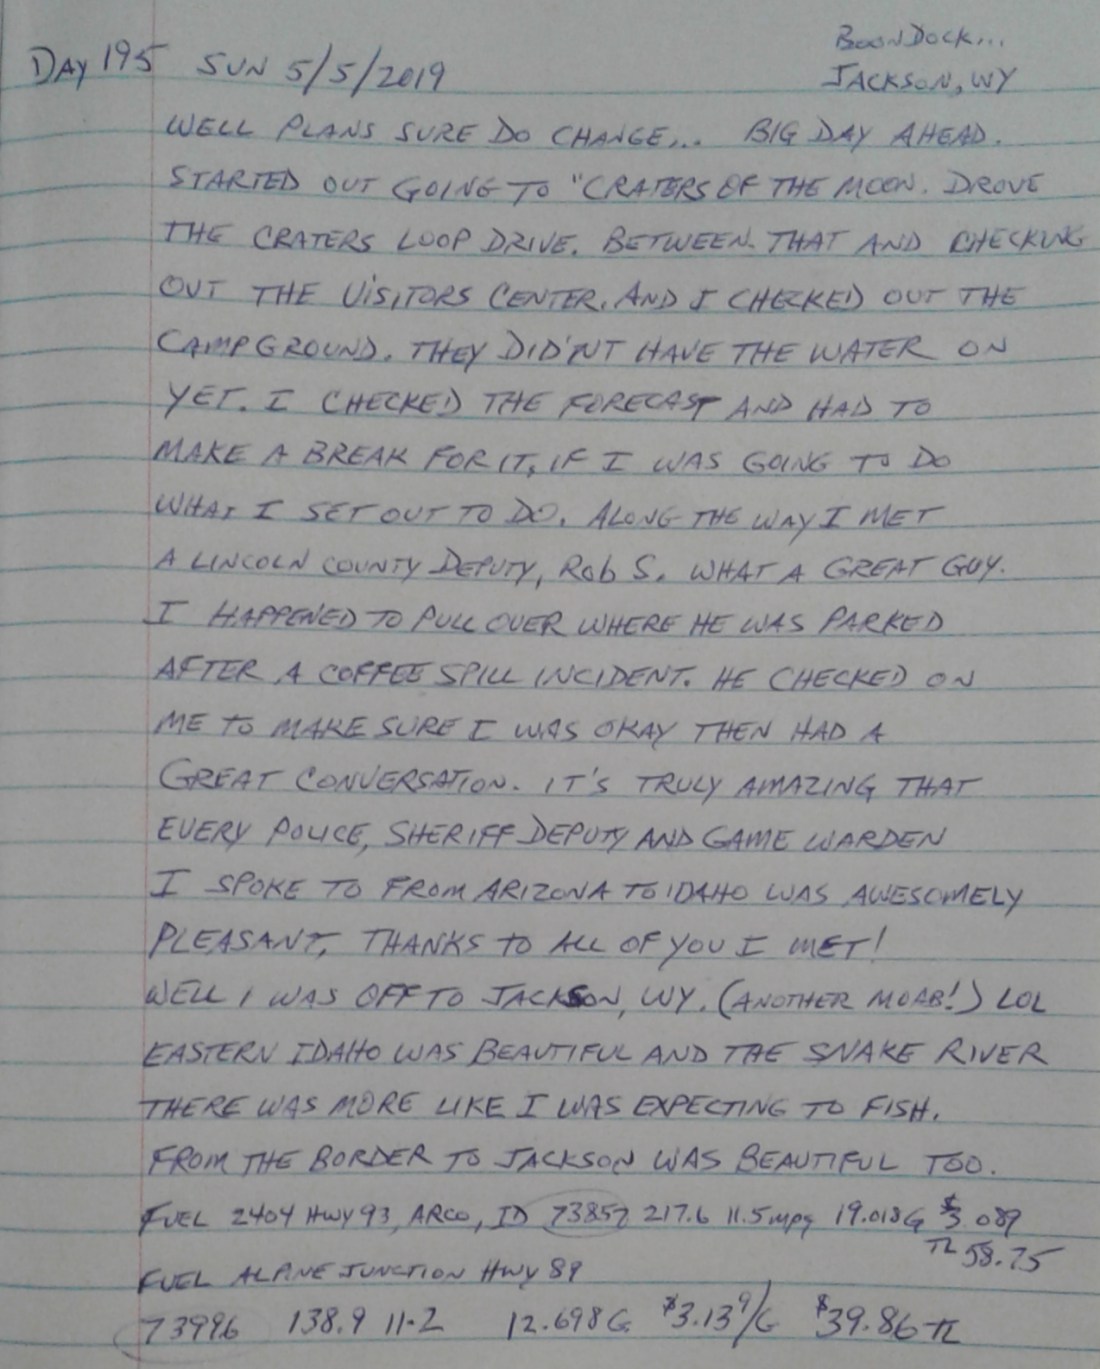 BOONDOCK...
DAY 195 SUN 5/5/2019
JACKSON, WY
WELL PLANS SURE DO CHANGE... BIG DAY AHEAD.
STARTED OUT GOING TO "CRATERS OF THE MOON. DROVE
THE CRATERS LOOP DRIVE. BETWEEN THAT AND CHECKING
OUT THE VISITORS CENTER. AND I CHECKED OUT THE
CAMPGROUND. THEY DID'NT HAVE THE WATER ON
YET. I CHECKED THE FORECAST AND HAD TO
MAKE A BREAK FOR IT, IF I WAS GOING TO DO
WHAT I SET OUT TO DO. ALONG THE WAY I MET
A LINCOLN COUNTY DEPUTY, Rob S. WHAT A GREAT GUY.
I HAPPENED TO PULL OVER WHERE HE WAS PARKED
AFTER A COFFEE SPILL INCIDENT. HE CHECKED ON
ME TO MAKE SURE I WAS OKAY THEN HAD A
GREAT CONVERSATION. IT'S TRULY AMAZING THAT
EVERY POLICE, SHERIFF DEPUTY AND GAME WARDEN
I SPOKE TO FROM ARIZONA TO IDAHO WAS AWESOMELY
PLEASANT, THANKS TO ALL OF YOU I MET!
WELL I WAS OFF TO JACKSON, WY. (ANOTHER MOAB!) LOL
EASTERN IDAHO WAS BEAUTIFUL AND THE SNAKE RIVER
THERE WAS MORE LIKE I WAS EXPECTING TO FISH.
FROM THE BORDER TO JACKSON WAS BEAUTIFUL TOO.
FUEL 2404 HWY 93, ARCO, ID 73857 217.6 11.5 mpg 19.018G $3.089
TL 58.75
FUEL ALPINE JUNCTION HWY 89
73996 138.9 11.2 12.698G $3.13 9/G $39.86 TL